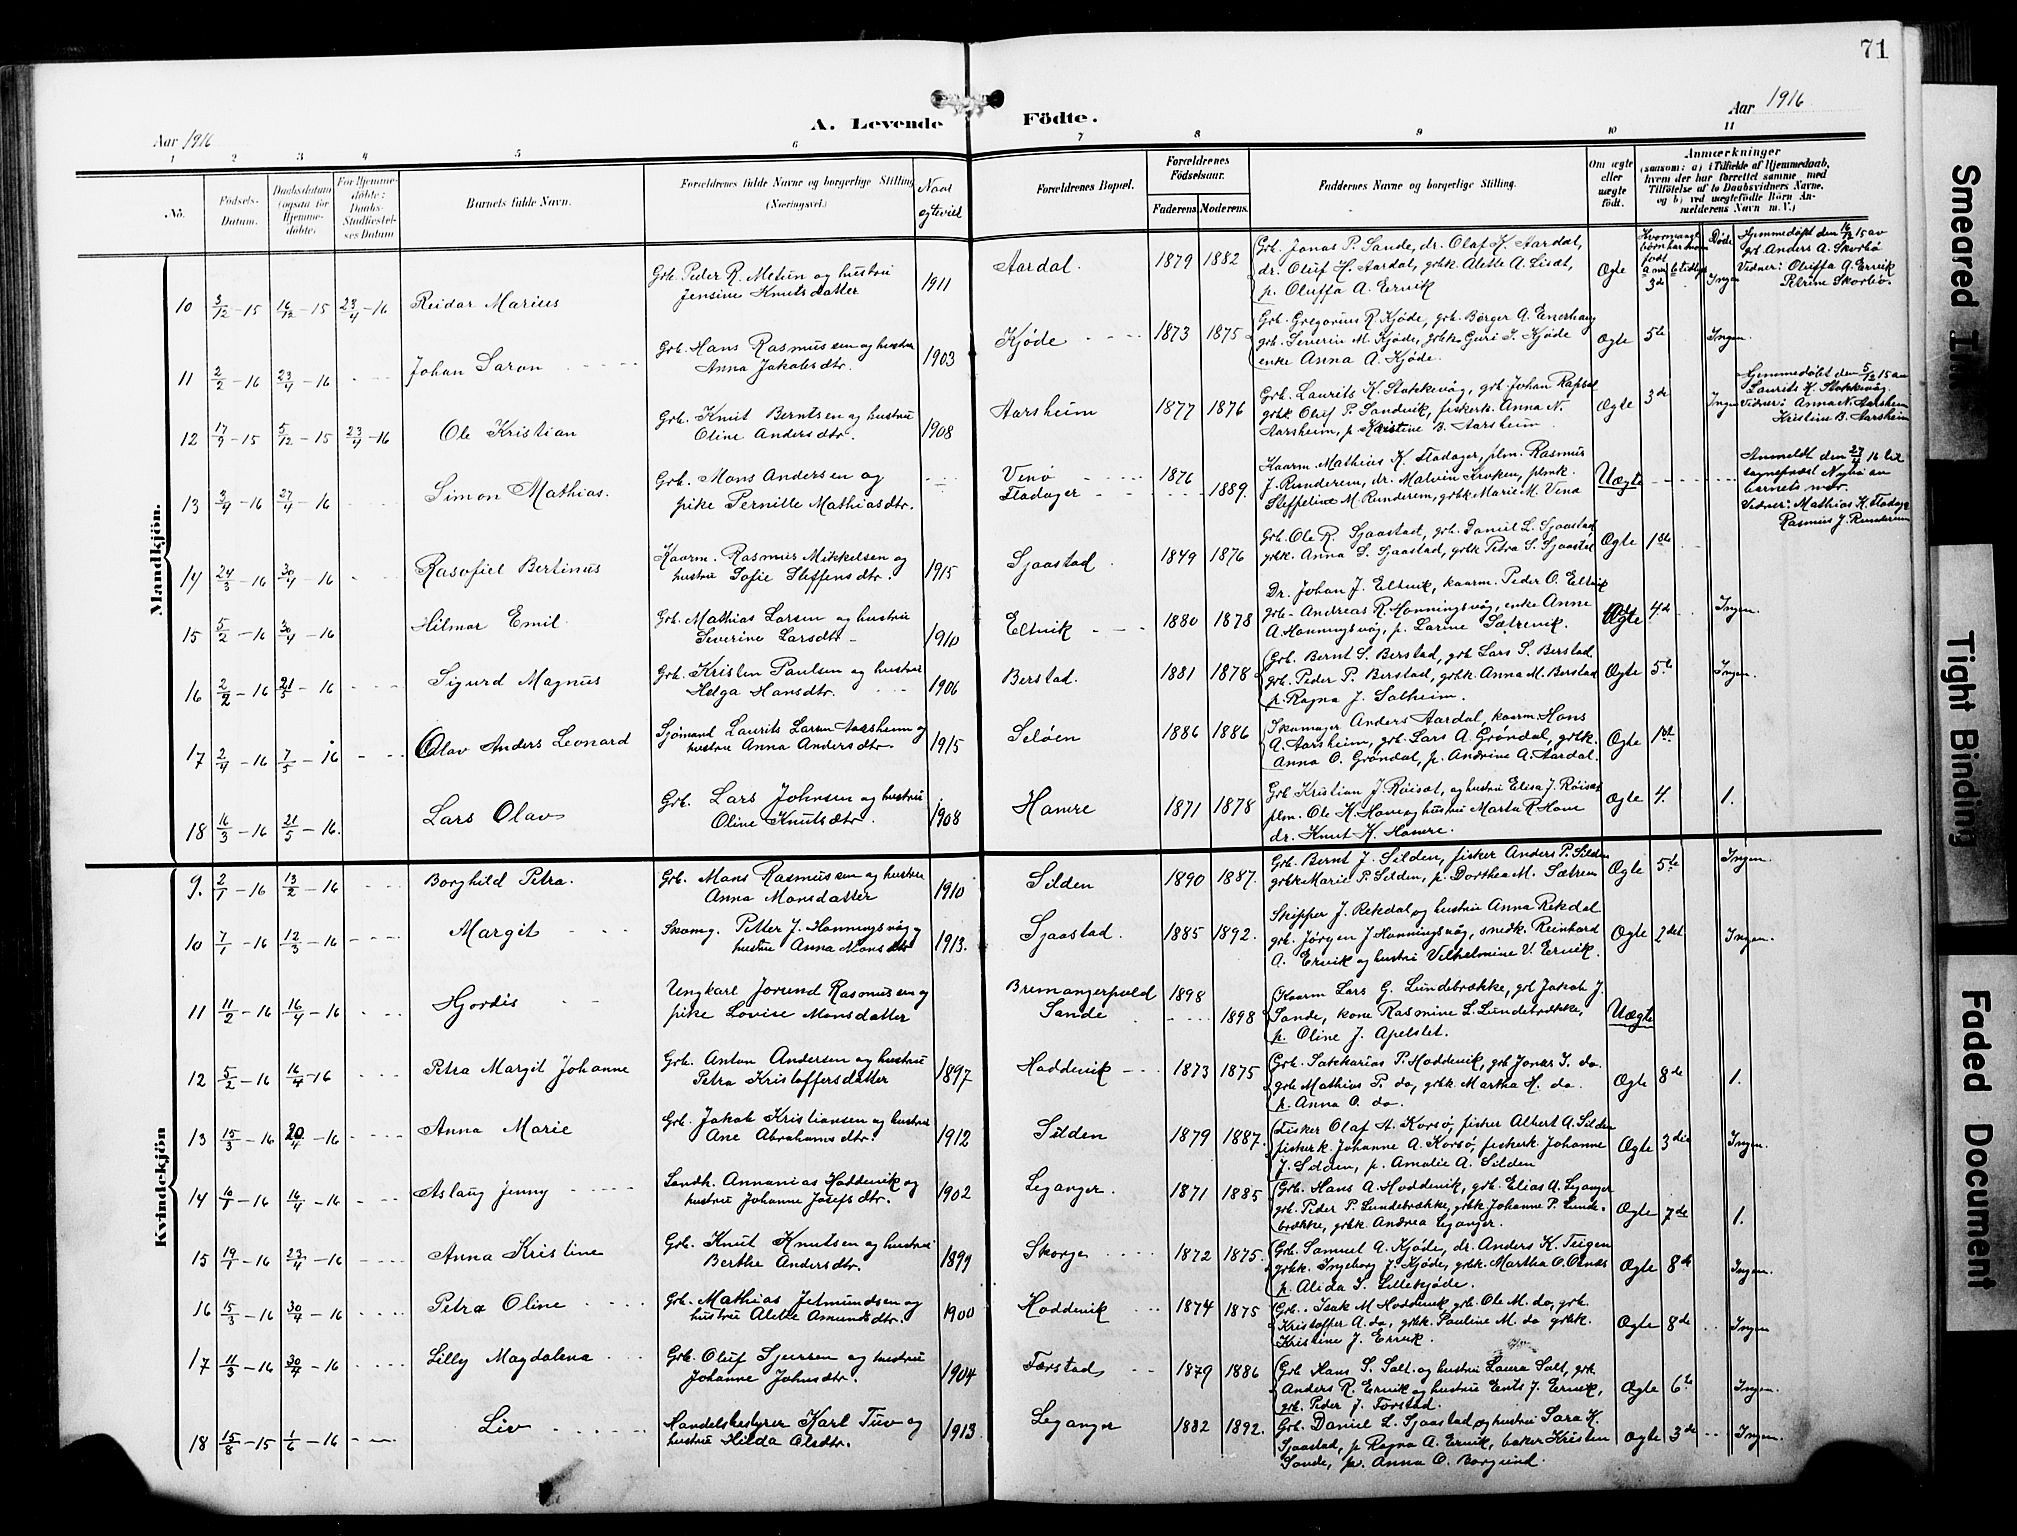 71
Aar 1916
A. Levende Födte.
Aar 1916
1 2 3 4 5 6 7 8 9 10 11
No. Födsels-Datum. Daabsdatum (ogsaa for Hjemme-døbte. For Hjemme-døbte: Daabs-Stadfæstel-ses Datum Barnets fulde Navn. Forældrenes fulde Navne og borgerlige Stilling (Næringsvei.) Naar egteviet Forældrenes Bopæl. Forældrenes Födselsaar. Faderens. Moderens. Faddernes Navne og borgerlige Stilling. Om ægte eller uægte født. Anmærkninger (saasom: a) i Tilfælde af Hjemmedaab, hvem der har forrettet samme, med Tilföielse af to Daabsvidners Navne, og b) ved uægtefödte Börn Anmelderens Navn m. V.)
Mandkjön.
10 3/12 - 15 16/12 - 15 23/4 - 16 Reidar Marius Grb. Peder R. Metun og hustru Jensine Knutsdatter 1911 Aardal. 1879 1882 Grb. Jonas P. Sande, dr. Olaf K. Aardal, dr. Oluf H. Aardal, grbk. Alette A. Liset, p. Oluffa A. Ervik Ægte 3de Ingen Hjemmedøpt den 16/12 15 av grb. Anders A. Skorbø Vidner: Oluffa A. Ervik Petrine Skorbø.
11 2/2 - 16 23/4 - 16 Johan Saron Grb. Hans Rasmussen og hustru Anna Jakobsdtr. 1903 Kjøde 1873 1875 Grb. Gregorius R. Kjøde, grb. Børger A. Enerhaug grb. Severin M. Kjøde, grbk. Guri I. Kjøde enke Anna A. Kjøde. Ægte 5te Ingen.
12 17/9 - 15 5/12 - 15 23/4 - 16 Ole Kristian Grb. Knut Berntsen og hustru Oline Andersdtr. 1908 Aarsheim 1877 1876 Grb. Laurits K. Stokkevåg, grb. Johan Rapsal grbk. Oluf P. Sandvik, fiskerk. Anna N. Aarsheim, p. Kristine B. Aarsheim Ægte 3de Ingen Hjemmedøbt den 5/12 15 av Laurits K. Stokkevåg. Vidner: Anna N. Aarsheim Kristine B. Aarsheim
13 3/4 - 16 27/4 - 16 Simon Mathias. Grb. Mons Andersen og pike Pernille Mathiasdtr. Venø Flodager 1876 1889. Kaarm. Mathias K. Flodager, plm. Rasmus J. Runderem, dr. Malvin Kroken, plmk. Steffeline M. Runderem, grbk. Marie M. Venø Uægte Anmeldt den 27/4 16 til sogneprest Nybø av barnets mor. Vidner: Mathias K. Flodager Rasmus J. Runderem
14 24/3 - 16 30/4 - 16 Rasofiel Bertinus Kaarm. Rasmus Mikkelsen og hustru Sofie Steffensdtr. 1915 Sjaastad. 1849 1876 Grb. Ole R. Sjaastad, grb. Daniel L. Sjaastad, grbk. Anna S. Sjaastad, grbk. Petra S. Sjaastad Ægte 1ste
15 5/2 - 16 30/4 - 16 Hilmar Emil. Grb. Mathias Larsen og hustru Severine Larsdtr. 1910 Eltvik 1880 1878 Dr. Johan J. Eltvik, kaarm. Peder O. Eltvik grb. Andreas R. Honningsvåg, enke Anne A. Honningsvåg, p. Larine Sætrevik. Ægte 4de Ingen.
16 2/2 - 16 21/5 - 16 Sigurd Magnus Grb. Kristen Paulsen og hustru Helga Hansdtr. 1906 Berstad. 1881 1878 Grb. Bernt S. Berstad, grb. Lars S. Berstad grb. Peder P. Berstad, grbk. Anna M. Berstad p. Ragna J. Solheim. Ægte 5te Ingen.
17 2/4 - 16 7/5 - 16 Olav Anders Leonard Sjømand Laurits Larsen Aarsheim og hustru Anna Andersdtr. 1915 Seløen 1886 1886 Skomager Anders Aardal, kaarm. Hans A. Aarsheim, grb. Lars A. Grøndal, grbk. Anna O. Grøndal, p. Andrine A. Aardal. Ægte 1st
18 16/3 - 16 21/5 - 16. Lars Olav Grb. Lars Johnsen og hustru Oline Knutsdtr. 1908 Hamre 1871 1878 Grb. Kristian J. Røiset, og hustru Elisa J. Røiset plm. Ole H. Hove og hustru Marta R. Hove dr. Knut K. Hamre. Ægte 4. 1.
Kvindekjön
9. 2/1 - 16 13/2 - 16 Borghild Petra. Grb. Mons Rasmussen og hustru Anna Monsdatter 1910 Silden 1890 1887. Grb. Bernt J. Silden, fisker Anders P. Silden grbk. Marie P. Silden, p. Dorthea M. Sætren Ægte 5te Ingen.
10 7/1 - 16 12/3 - 16 Margit Skomg. Petter J. Honningsvåg og hustru Anna Monsdtr 1913. Sjaastad. 1885 1892. Skipper J. Rekdal og hustru Anna Rekdal grb. Jørgen J. Honningsvåg, snedk. Reinhard A. Ervik og hustru Vilhelmine V. Ervik. Ægte 2det Ingen.
11 11/2 - 16 16/4 - 16 Hjordis Ungkarl Jorund Rasmussen og pike Lovise Monsdatter Bremangerpold Sande 1898 1898 Kaarm Lars G. Lundebrække, grb. Jakob J. Sande, kone Rasmine L. Lundebrække, p. Oline J. Apelset. Uægte
12 5/2 - 16 16/4 - 16 Petra Margit Johanne Grb. Anton Andersen og hustru Petra Kristoffersdatter 1897 Hoddevik 1873 1875 Grb. Sakarias P. Hoddevik, grb. Jonas I. do. grb. Mathias P. do, grbk. Martha H. do. p. Anna O. do. Ægte 8de 1.
13 15/3 - 16 20/4 - 16 Anna Marie Grb. Jakob Kristiansen og hustru Ane Abrahamsdtr. 1912 Silden 1879 1887. Fisker Olaf A. Korsø, fisker Albert A. Silden fiskerk. Johanne A. Korsø, fiskerk. Johanne J. Silden, p. Amalie A. Silden Ægte 3die Ingen.
14 10/1 - 16 16/4 - 16 Aslaug Jenny Landh. Annanias Hoddevik og hustru Johanne Josefsdtr. 1902 Leganger. 1871 1885 Grb. Hans A. Hoddevik, grb. Elias A. Leganger grb. Peder P. Lundebrække, grbk. Johanne P. Lunde-brække, grbk. Andrea Leganger. Ægte 7de 1.
15 19/1 - 16 23/4 - 16 Anna Kristine Grb. Knut Knutsen og hustru Berthe Andersdtr. 1899 Skorge 1872 1875. Grb. Samuel A. Kjøde, dr. Anders K. Teigen grbk. Ingeborg J. Kjøde, grbk. Martha O. Osnes p. Alida S. Lillekjøde. Ægte 8de Ingen.
16 15/3 - 16 30/4 - 16 Petra Oline Grb. Mathias Jetmundsen og hustru Alette Amundsdtr. 1900 Hoddevik 1874 1875 Grb. Isak M. Hoddevik, grb. Ole M. do, grb. Kristoffer A. do, grbk. Pauline M. do grbk. Kristine J. Ervik. Ægte 8de Ingen
17 11/3 - 16 30/4 - 16 Lilly Magdalena Grb. Oluf Sjursen og hustru Johanne Johnsdtr. 1904 Førstad 1879 1886 Grb. Hans S. Salt og hustru Laura Salt, grb. Anders R. Ervik og hustru Ents J. Ervik, grb. Peder J. Førstad. Ægte 6te Ingen.
18 15/8 - 15 1/6 - 16 Liv Handelsbestyrer Karl Tuv og hustru Hilda Olsdtr. 1913. Leganger 1882 1892. Grb. Daniel L. Sjaastad og hustru Sara K. Sjaastad, p. Ragna A. Ervik, baker Kristen Sande, p. Anna O. Borgund. Ægte 3de Ingen.
Smeared Ink
Tight Binding
Faded Document